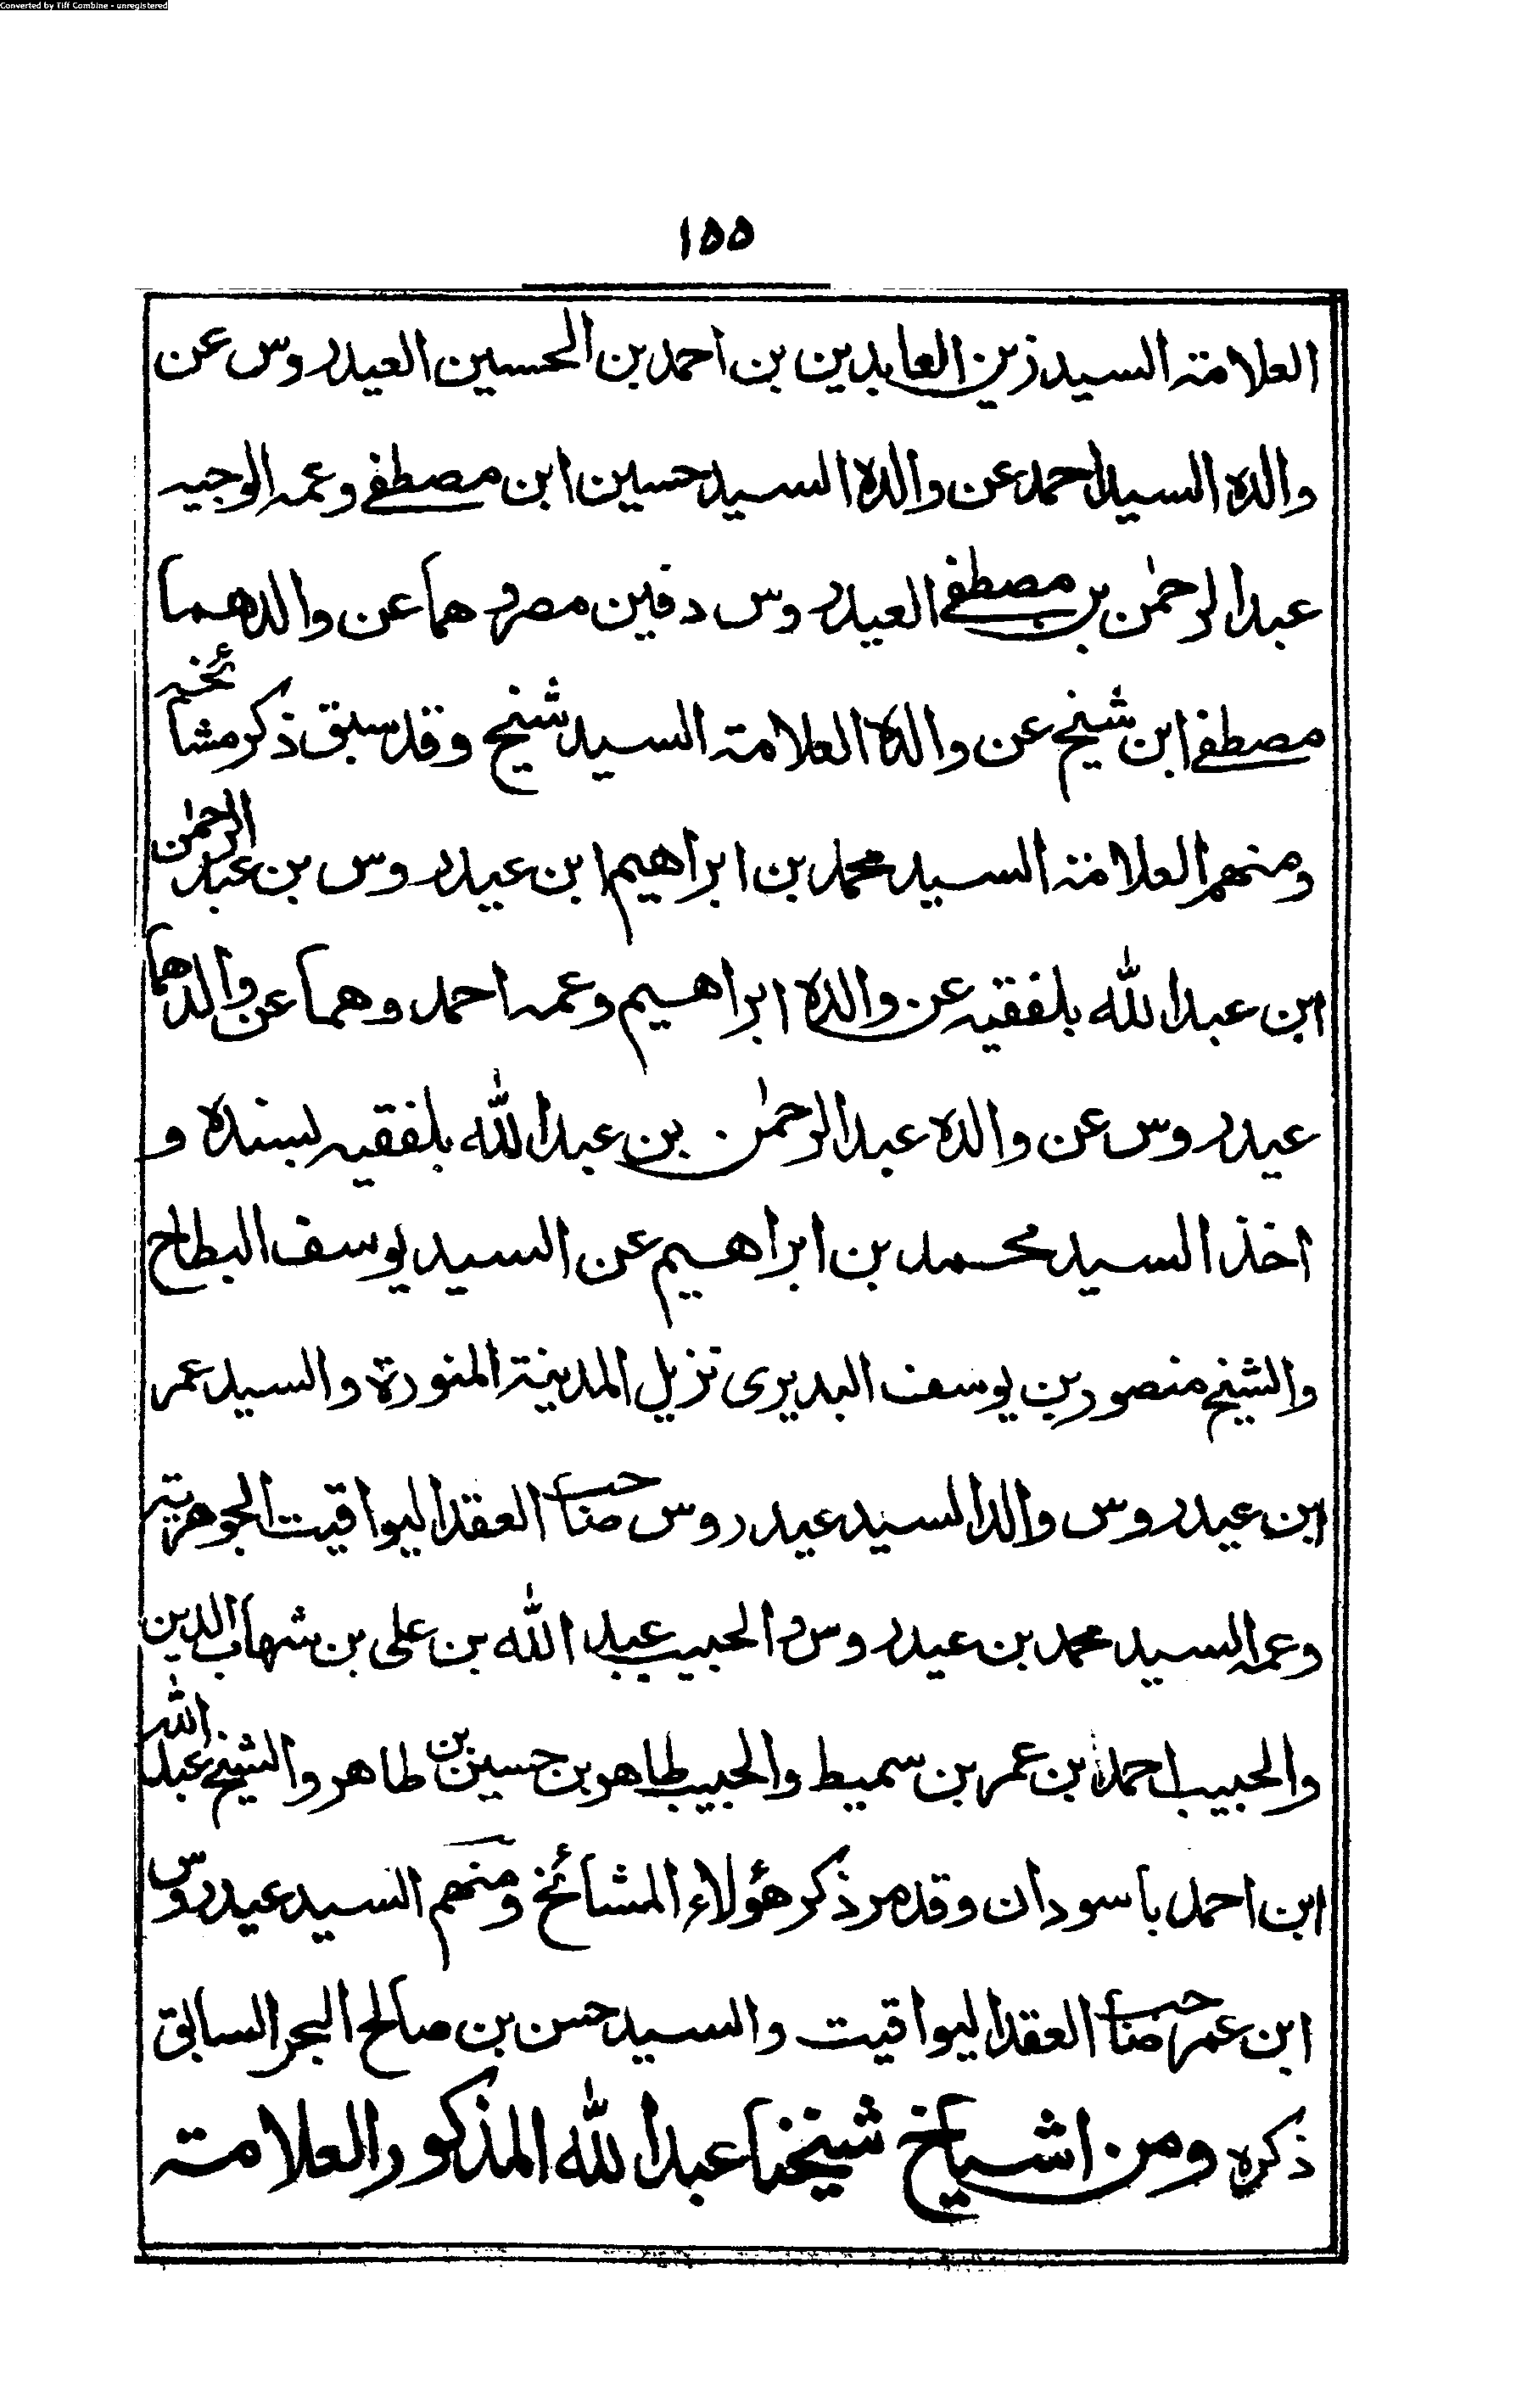 Converted by Tiff Combine - unregistered
١٥٥
العلامة السيد زين العابدين بن احمد بن الحسين العيدروس عن
والده السيد احمد عن والده السيد حسين ابن مصطفے وعمه الوجيه
عبد الرحمٰن بن مصطفے العيدروس دفين مصر وهما عن والدهما
مصطفے ابن شيخ عن والده العلامة السيد شيخ وقد سبق ذكر مشائخه
ومنهم العلامة السيد محمد بن ابراهيم ابن عيدروس بن عبد الرحمٰن
ابن عبد الله بلفقيه عن والده ابراهيم وعمه احمد وهما عن والدهما
عيدروس عن والده عبد الرحمٰن بن عبد الله بلفقيه بسنده و
اخذ السيد محمد بن ابراهيم عن السيد يوسف البطاح
والشيخ منصور بن يوسف البديرى نزيل المدينة المنورة والسيد عمر
ابن عيدروس والد السيد عيدروس صاحب العقد اليواقيت الجوهرية
وعمه السيد محمد بن عيدروس والحبيب عبد الله بن على بن شهاب الدين
والحبيب احمد بن عمر بن سميط والحبيب طاهر بن حسين بن طاهر والشيخ عبد الله
ابن احمد باسودان وقد مر ذكر هؤلاء المشائخ ومنهم السيد عيدروس
ابن عمر صاحب العقد اليواقيت والسيد حسن بن صالح البحر السابق
ذكره ومن اشياخ شيخنا عبد الله المذكور العلامة